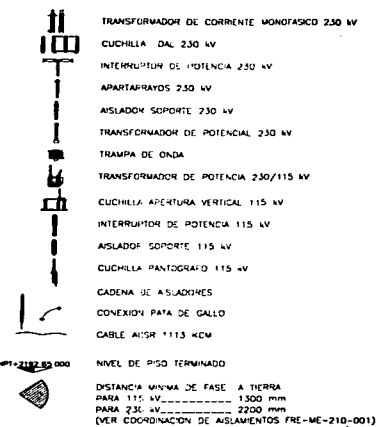 TRANSFORMADOR DE CORRIENTE MONOFASICO 230 kV
CUCHILLA DAL 230 kV
INTERRUPTOR DE POTENCIA 230 kV
APARTARRAYOS 230 kV
AISLADOR SOPORTE 230 kV
TRANSFORMADOR DE POTENCIAL 230 kV
TRAMPA DE ONDA
TRANSFORMADOR DE POTENCIA 230/115 kV
CUCHILLA APERTURA VERTICAL 115 kV
INTERRUPTOR DE POTENCIA 115 kV
AISLADOR SOPORTE 115 kV
CUCHILLA PANTOGRAFO 115 kV
CADENA DE AISLADORES
CONEXION PATA DE GALLO
CABLE ACSR 1113 KCM
NPT+2192.85 000 NIVEL DE PISO TERMINADO
DISTANCIA MINIMA DE FASE A TIERRA
PARA 115 kV__________ 1300 mm
PARA 230 kV__________ 2200 mm
(VER COORDINACION DE AISLAMIENTOS FRE-ME-210-001)